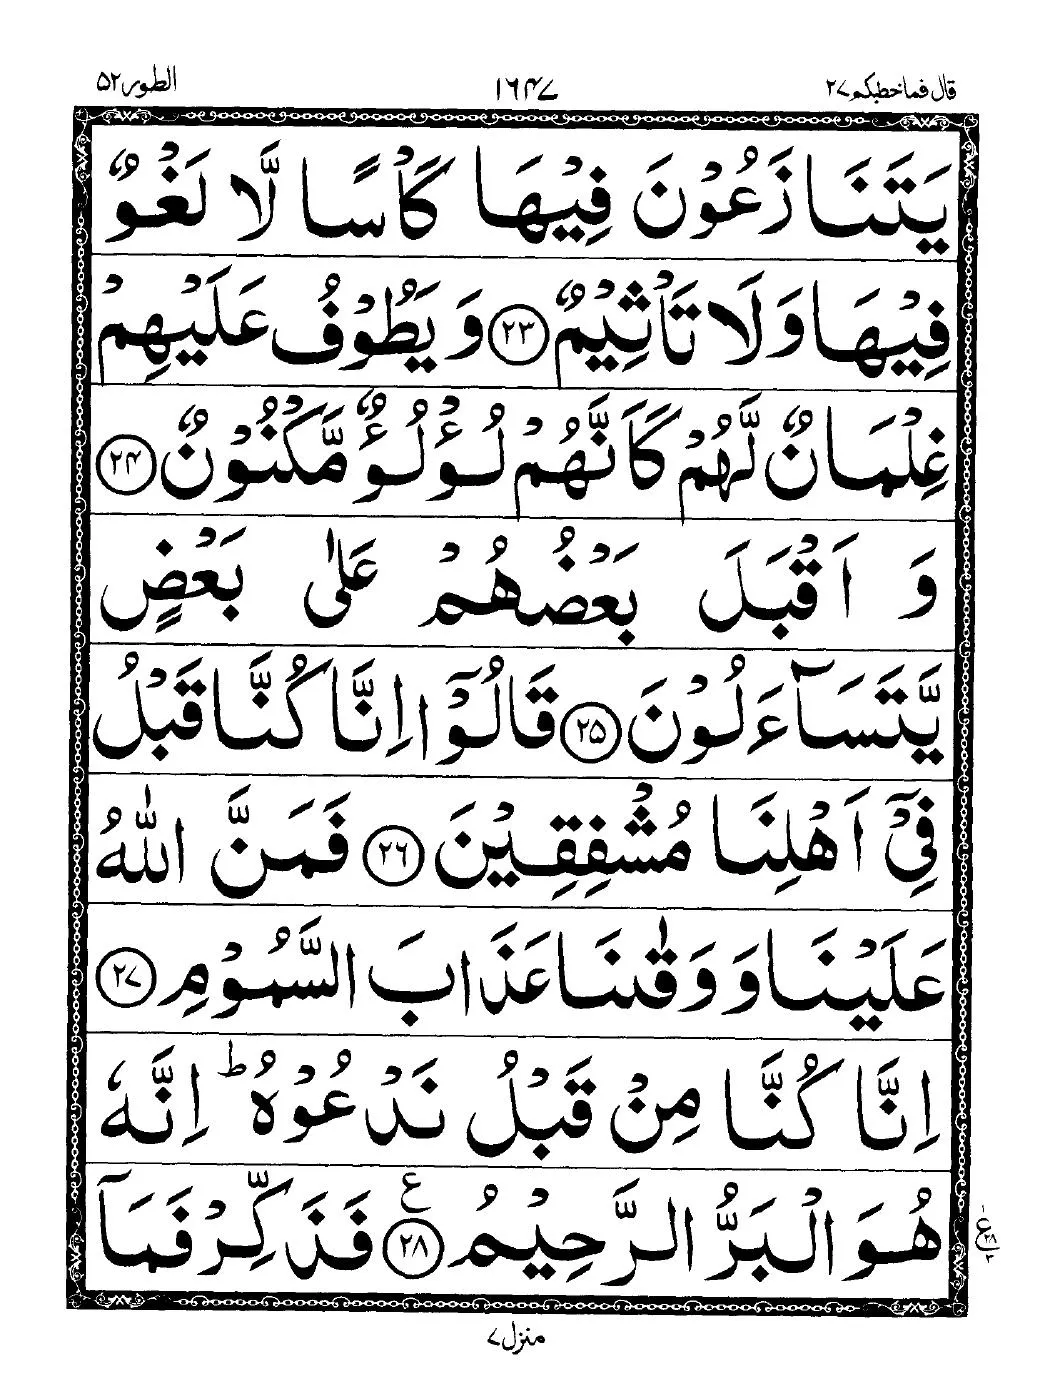 قال فما خطبکم ٢٧
١٦٤٧
الطور ٥٢
يَتَنَازَعُوْنَ فِيْهَا كَاْسًا لَّا لَغْوٌ
فِيْهَا وَلَا تَاْثِيْمٌ ٢٣ وَ يَطُوْفُ عَلَيْهِمْ
غِلْمَانٌ لَّهُمْ كَاَنَّهُمْ لُؤْلُؤٌ مَّكْنُوْنٌ ٢٤
وَ اَقْبَلَ بَعْضُهُمْ عَلٰى بَعْضٍ
يَّتَسَآءَلُوْنَ ٢٥ قَالُوْٓا اِنَّا كُنَّا قَبْلُ
فِيْٓ اَهْلِنَا مُشْفِقِيْنَ ٢٦ فَمَنَّ اللّٰهُ
عَلَيْنَا وَ وَقٰىنَا عَذَابَ السَّمُوْمِ ٢٧
اِنَّا كُنَّا مِنْ قَبْلُ نَدْعُوْهُ ؕ اِنَّهٗ
هُوَ الْبَرُّ الرَّحِيْمُ ٢٨ ع فَذَكِّرْ فَمَآ
١
ع ٢٨
٣
منزل ٧